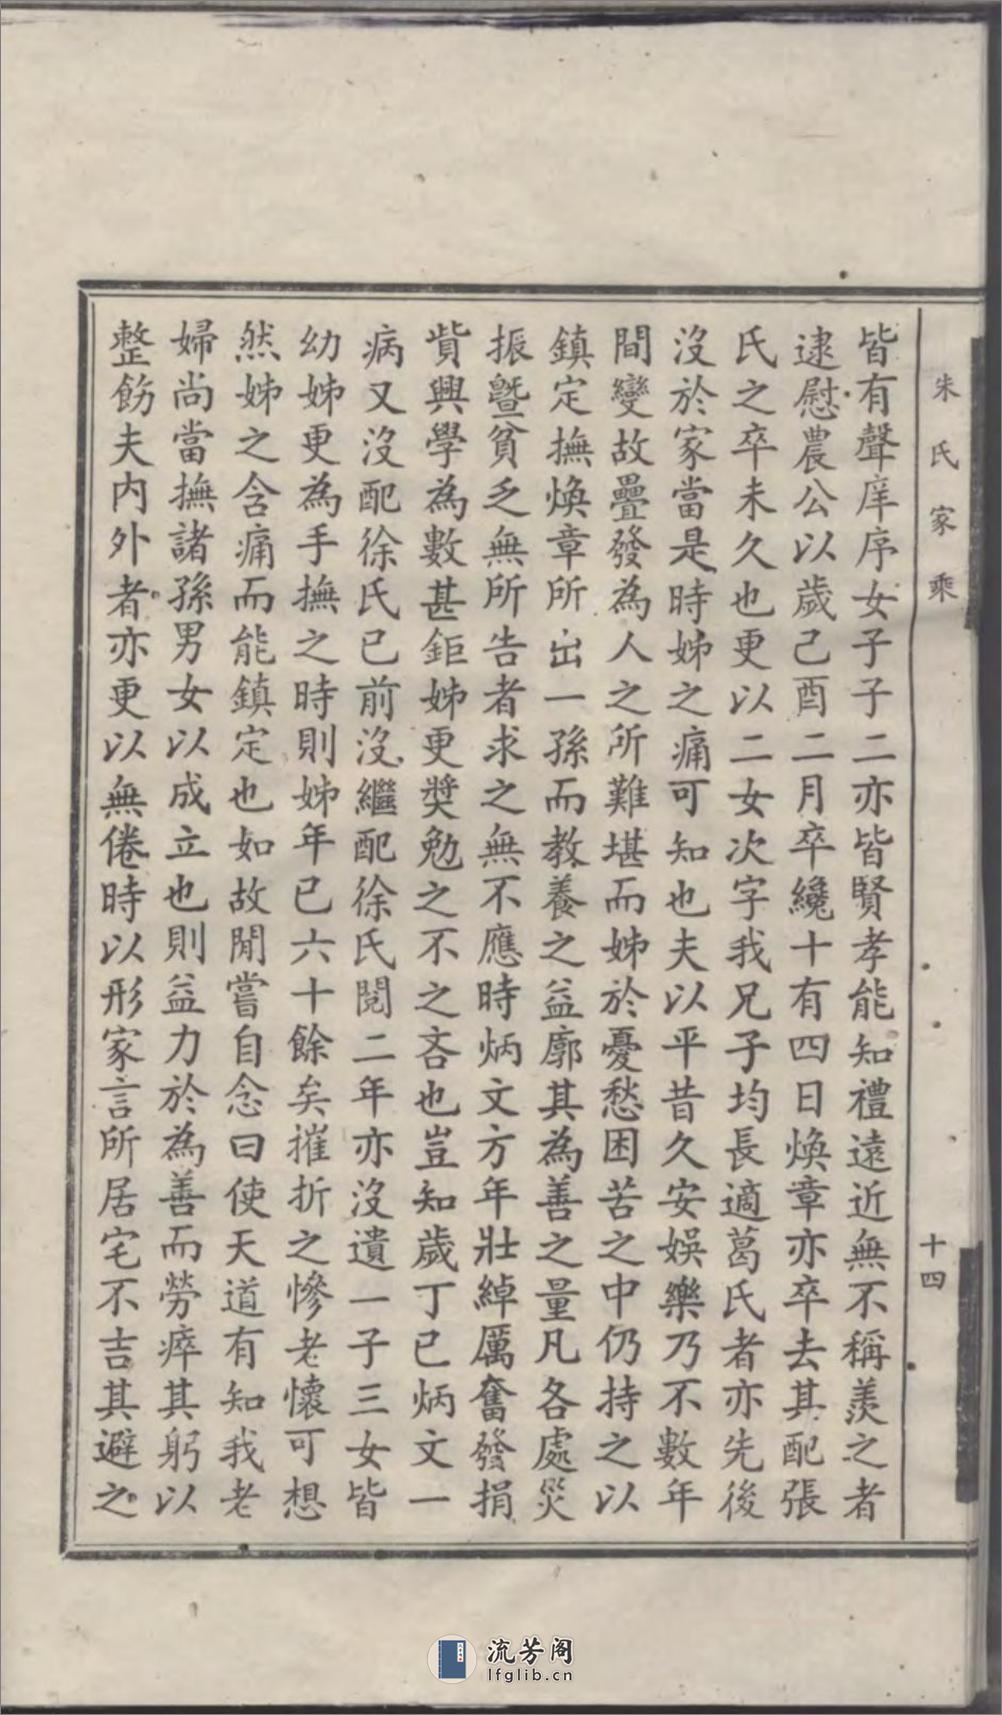 朱氏家乘
十四
皆有聲庠序女子子二亦皆賢孝能知禮遠近無不稱羨之者
逮慰農公以歲己酉二月卒纔十有四日煥章亦卒去其配張
氏之卒未久也更以二女次字我兄子均長適葛氏者亦先後
沒於家當是時姊之痛可知也夫以平昔久安娛樂乃不數年
間變故疊發為人之所難堪而姊於憂愁困苦之中仍持之以
鎮定撫煥章所出一孫而教養之益廓其為善之量凡各處災
振曁貧乏無所告者求之無不應時炳文方年壯綽厲奮發捐
貲興學為數甚鉅姊更獎勉之不之吝也豈知歲丁巳炳文一
病又沒配徐氏已前沒繼配徐氏閱二年亦沒遺一子三女皆
幼姊更為手撫之時則姊年已六十餘矣摧折之慘老懷可想
然姊之含痛而能鎮定也如故閒嘗自念曰使天道有知我老
婦尚當撫諸孫男女以成立也則益力於為善而勞瘁其躬以
整飭夫內外者亦更以無倦時以形家言所居宅不吉其避之
流芳阁
lfglib.cn